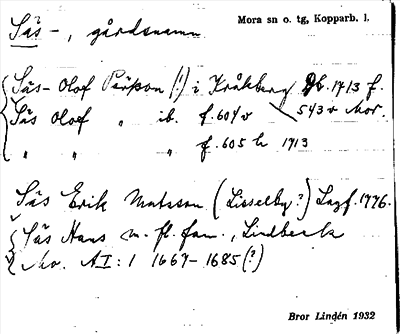 Säs-, gårdsnamn
Mora sn o. tg, Kopparb. l.
Säs-Olof Pärsson (!) i Kråkberg Jb. 1713 f.
Säs Olof " ib. f. 604 v 543 v Mor.
" " " f. 605 h 1713
Säs Erik Matsson (Lisselby?) Lagf. 1776.
Säs Hans m. fl. fam., Lindbeck
Mo. AI:1 1667–1685 (?)
Bror Lindén 1932